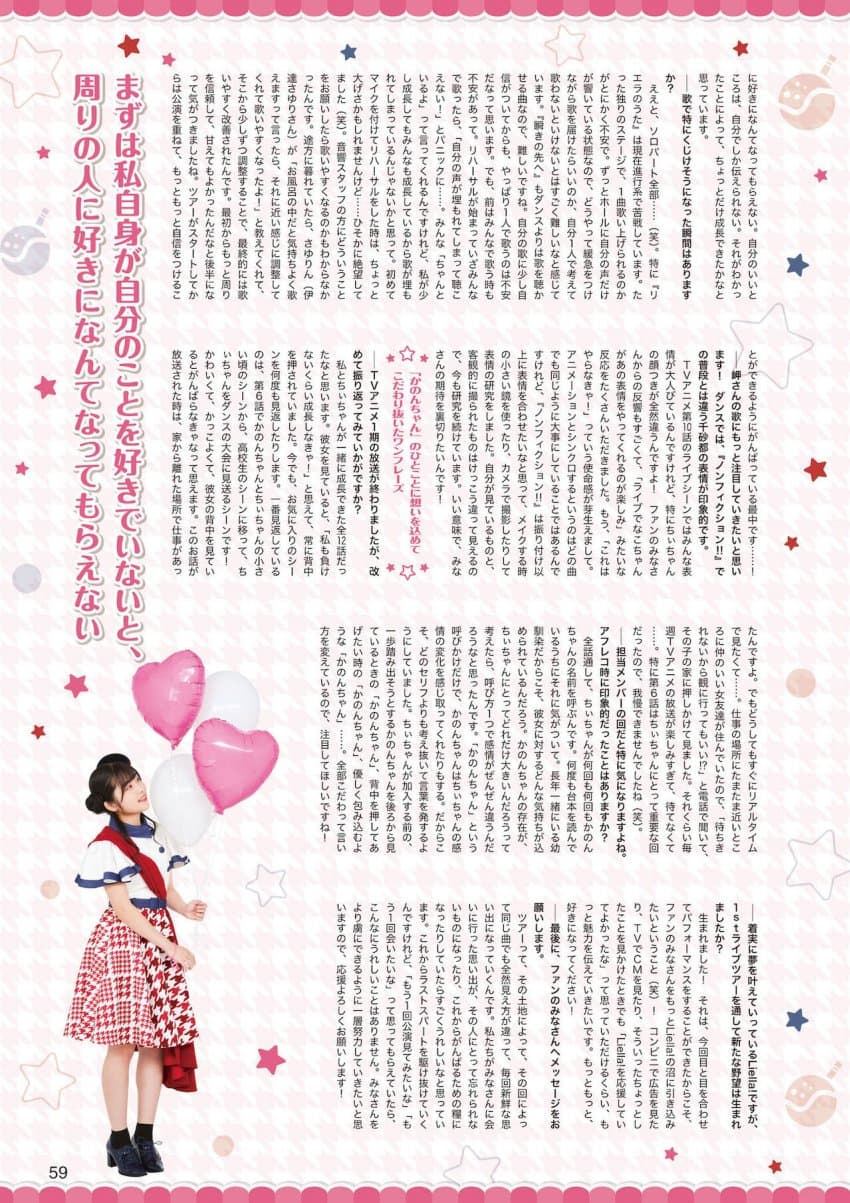 まずは私自身が自分のことを好きでいないと、
周りの人に好きになんてなってもらえない
に好きになんてなってもらえない。自分のいいと
ころは、自分でしか伝えられない。それがわかっ
たことによって、ちょっとだけ成長できたかなと
思っています。
──歌で特にくじけそうになった瞬間はあります
か?
ええと、ソロパート全部……(笑)。特に『リ
エラのうた』は現在進行系で苦戦しています。た
った独りのステージで、1曲歌い上げられるのか
がとにかく不安で。ずっとホールに自分の声だけ
が響いている状態なので、どうやって緩急をつけ
ながら歌を届けたらいいのか、自分1人で考えて
歌わないといけないとはすごく難しいなと感じて
います。『瞬きの先へ』もダンスよりは歌を聴か
せる曲なので、難しいですね。自分の歌に少し自
信がついてからも、やっぱり1人で歌うのは不安
だなって思います。でも、前はみんなで歌う時も
不安があって。リハーサルが始まっていざみんな
で歌ったら、「自分の声が埋もれてしまって聴こ
えない!」とパニックに……。みんな「ちゃんと
いるよ」って言ってくれるんですけれど、私が少
し成長してもみんなも成長しているから歌が埋も
れてしまっているんじゃないかと思って。初めて
マイクを付けてリハーサルをした時は、ちょっと
大げさかもしれませんけど……ひそかに絶望して
ました(笑)。音響スタッフの方にどういうこと
をお願いしたら歌いやすくなるのかもわからなか
ったんです。途方に暮れていたら、さゆりん(伊
達さゆりさん)が「お風呂の中だと気持ちよく歌
えますって言ったら、それに近い感じに調整して
くれて歌いやすくなったよ!」と教えてくれて、
そこから少しずつ調整することで、最終的には歌
いやすく改善されたんです。最初からもっと周り
を信頼して、甘えてもよかったんだなと後半にな
って気がつきましたね。ツアーがスタートしてか
らは公演を重ねて、もっともっと自信をつけるこ
とができるようにがんばっている最中です……!
──岬さんの歌にもっと注目していきたいと思い
ます! ダンスでは、『ノンフィクション!!』で
の普段とは違う千砂都の表情が印象的です。
TVアニメ第10話のライブシーンではみんな表
情が大人びているんですけれど、特にちぃちゃん
の顔つきが全然違うんですよ! ファンのみなさ
んからの反響もすごくて、「ライブでなこちゃん
があの表情をやってくれるのが楽しみ」みたいな
反応をたくさんいただきました。もう、「これは
やらなきゃ!」っていう使命感が芽生えまして。
アニメーションとシンクロするというのはどの曲
でも同じように大事にしていることではあるんで
すけれど、『ノンフィクション!!』は振り付け以
上に表情を合わせたいなと思って、メイクする時
の小さい鏡を使ったり、カメラで撮影したりして
表情の研究をしました。自分が見ているものと、
客観的に撮られたものはけっこう違って見えるの
で、今も研究を続けています。いい意味で、みな
さんの期待を裏切りたいんです!
「かのんちゃん」のひとことに想いを込めて
こだわり抜いたワンフレーズ
──TVアニメ1期の放送が終わりましたが、改
めて振り返ってみていかがですか?
私とちぃちゃんが一緒に成長できた全12話だっ
たなと思います。彼女を見ていると、「私も負け
ないくらい成長しなきゃ!」と思えて、常に背中
を押されていました。今でも、お気に入りのシー
ンを何度も見返したりします。一番見返している
のは、第6話でかのんちゃんとちぃちゃんの小さ
い頃のシーンから、高校生のシーンに移って、ち
ぃちゃんをダンスの大会に見送るシーンです!
かわいくて、かっこよくて、彼女の背中を見てい
るとがんばらなきゃなって思えます。このお話が
放送された時は、家から離れた場所で仕事があっ
たんですよ。でもどうしてもすぐにリアルタイム
で見たくて……。仕事の場所にたまたま近いとこ
ろに仲のいい女友達が住んでいたので、「待ちき
れないから観に行ってもいい!?」と電話で聞いて、
その子の家に押しかけて見ました。それくらい毎
週TVアニメの放送が楽しみすぎて、待てなくて
……。特に第6話はちぃちゃんにとって重要な回
だったので、我慢できませんでしたね(笑)。
──担当メンバーの回だと特に気になりますよね。
アフレコ時に印象的だったことはありますか?
全話通して、ちぃちゃんが何回も何回もかのん
ちゃんの名前を呼ぶんです。何度も台本を読んで
いるうちにそれに気がついて。長年一緒にいる幼
馴染だからこそ、彼女に対するどんな気持ちが込
められているんだろう。かのんちゃんの存在が、
ちぃちゃんにとってどれだけ大きいんだろうって
考えたら、呼び方1つで感情がぜんぜん違うんだ
ろうなと思ったんです。「かのんちゃん」という
呼びかけだけで、かのんちゃんはちぃちゃんの感
情の変化を感じ取ってくれたりもする。だからこ
そ、どのセリフよりも考え抜いて言葉を発するよ
うにしていました。ちぃちゃんが加入する前の、
一歩踏み出そうとするかのんちゃんを後ろから見
ているときの「かのんちゃん」、背中を押してあ
げたい時の「かのんちゃん」、優しく包み込むよ
うな「かのんちゃん」……。全部こだわって言い
方を変えているので、注目してほしいですね!
──着実に夢を叶えていっているLiella!ですが、
1stライブツアーを通して新たな野望は生まれ
ましたか?
生まれました! それは、今回目と目を合わせ
てパフォーマンスをすることができたからこそ、
ファンのみなさんをもっとLiella!の沼に引き込み
たいということ(笑)! コンビニで広告を見た
り、TVでCMを見たり、そういったちょっとし
たことを見かけたときでも「Liella!を応援してい
てよかったな」って思っていただけるくらい、も
っと魅力を伝えていきたいです。もっともっと、
好きになってください!
──最後に、ファンのみなさんへメッセージをお
願いします。
ツアーって、その土地によって、その回によっ
て同じ曲でも全然見え方が違って、毎回新鮮な思
い出になっていくんです。私たちがみなさんに会
いに行った思い出が、その人にとって忘れられな
いものになったり、これからがんばるための糧に
なったりしていたらすごくうれしいなと思ってい
ます。これからラストスパートを駆け抜けていく
んですけれど、「もう1回公演見てみたいな」「も
う1回会いたいな」って思ってもらえていたら、
こんなにうれしいことはありません。みなさんを
より虜にできるように一層努力していきたいと思
いますので、応援よろしくお願いします!
59